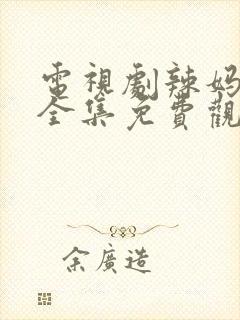 電視劇辣妈
全集免費觀
余廣造